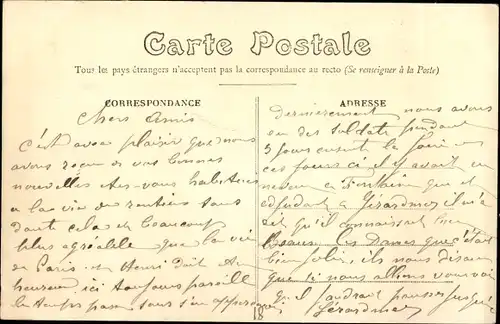 Carte Postale
Tous les pays étrangers n'acceptent pas la correspondance au recto (Se renseigner à la Poste)
CORRESPONDANCE
Chers Amis
c'est avec plaisir que nous
avons reçu de vos bonnes
nouvelles êtes-vous habitués
a la vie de rentiers sans
doute cela est beaucoup
plus agréable que la vie
de Paris Henri doit être
heureux, ici toujours pareille
le temps passe sans s'en apercevoir
ADRESSE
Dernièrement nous avons
eu des soldats pendant
3 jours ensuite
ces jours ci, il y avait un
a Fontaine qui est
adjudant a Gérardmer il m'a
dit qu'il connaissait bien
les Dames que c'était
bien joli, ils nous disaient
que si nous allions vous voir
qu'il faudrait pousser jusqu'à
Gérardmer
18